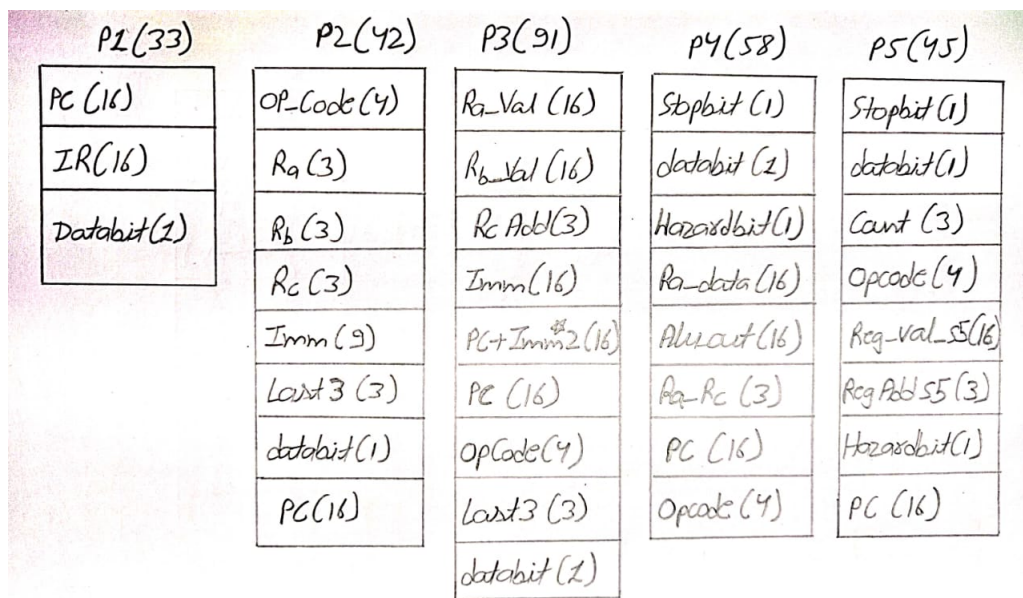 P1(33)
PC (16)
IR(16)
Databit(1)
P2(42)
OP_Code(4)
Ra(3)
Rb(3)
Rc(3)
Imm(9)
Last3 (3)
databit(1)
PC(16)
P3(91)
Ra_Val(16)
Rb_Val(16)
Rc Add(3)
Imm(16)
PC+Imm*2(16)
PC (16)
OpCode(4)
Last3 (3)
databit(1)
P4(58)
Stopbit(1)
databit(1)
Hazardbit(1)
Ra_data(16)
Aluout(16)
Ra_Rc (3)
PC (16)
Opcode(4)
P5(45)
Stopbit(1)
databit(1)
Count (3)
Opcode(4)
Reg_val_S5(16)
Reg Add S5(3)
Hazardbit(1)
PC (16)